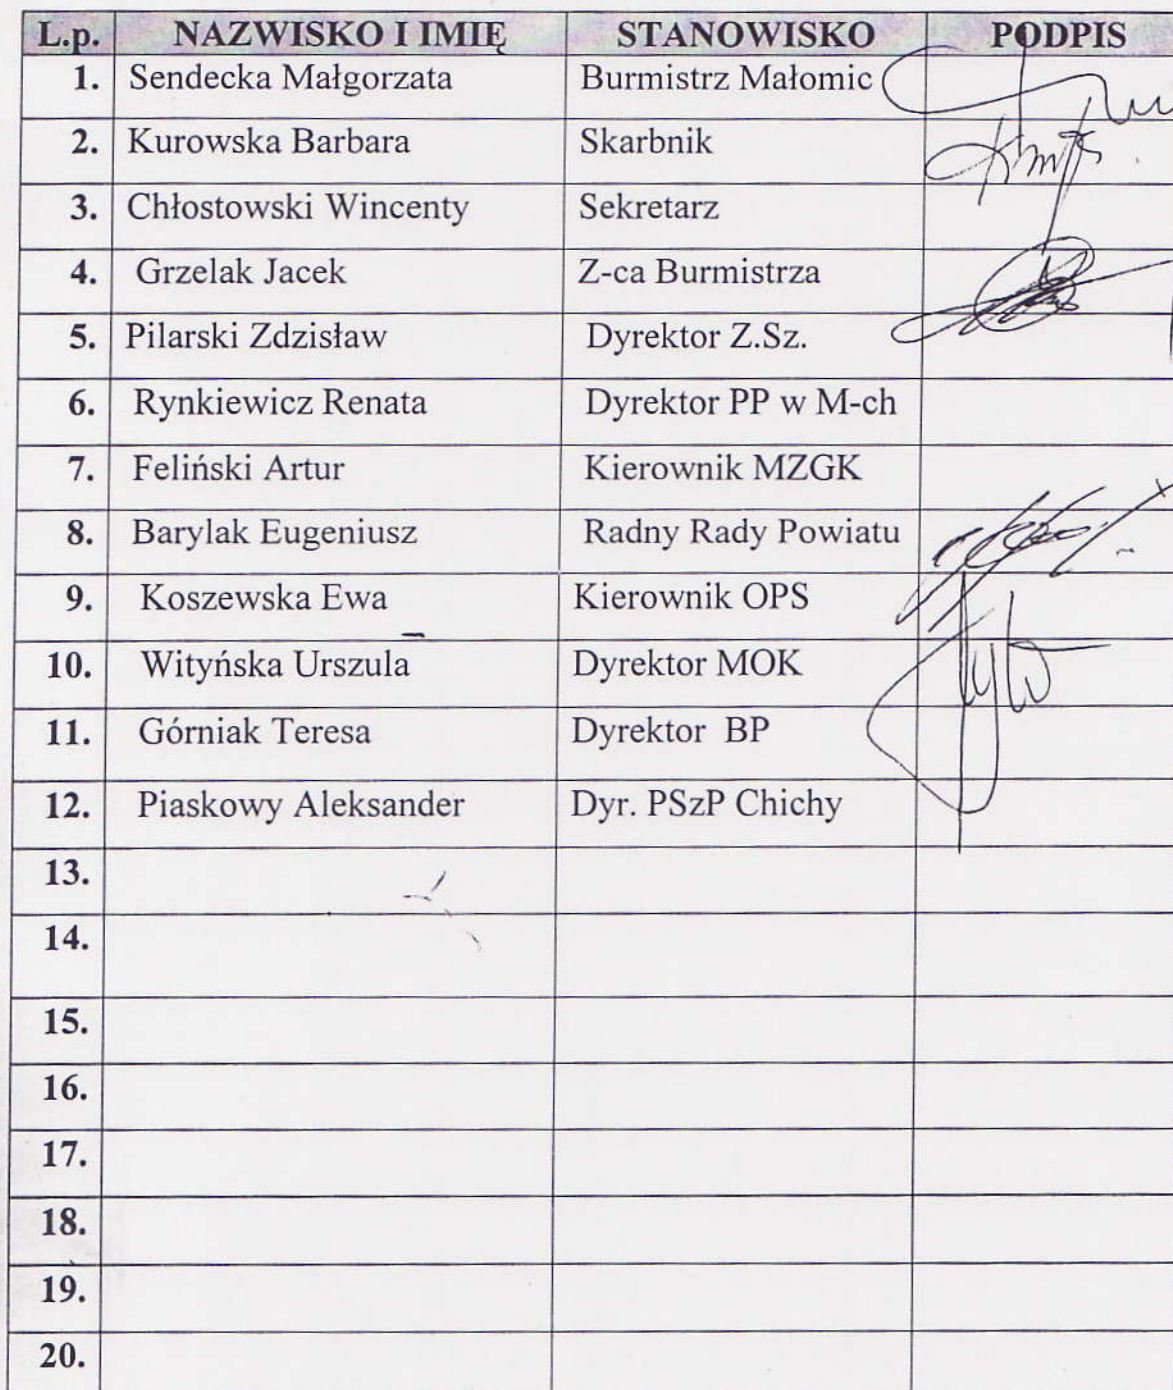 L.p. NAZWISKO I IMIĘ STANOWISKO PODPIS
1. Sendecka Małgorzata Burmistrz Małomic
2. Kurowska Barbara Skarbnik
3. Chłostowski Wincenty Sekretarz
4. Grzelak Jacek Z-ca Burmistrza
5. Pilarski Zdzisław Dyrektor Z.Sz.
6. Rynkiewicz Renata Dyrektor PP w M-ch
7. Feliński Artur Kierownik MZGK
8. Barylak Eugeniusz Radny Rady Powiatu
9. Koszewska Ewa Kierownik OPS
10. Wityńska Urszula Dyrektor MOK
11. Górniak Teresa Dyrektor BP
12. Piaskowy Aleksander Dyr. PSzP Chichy
13.
14.
15.
16.
17.
18.
19.
20.